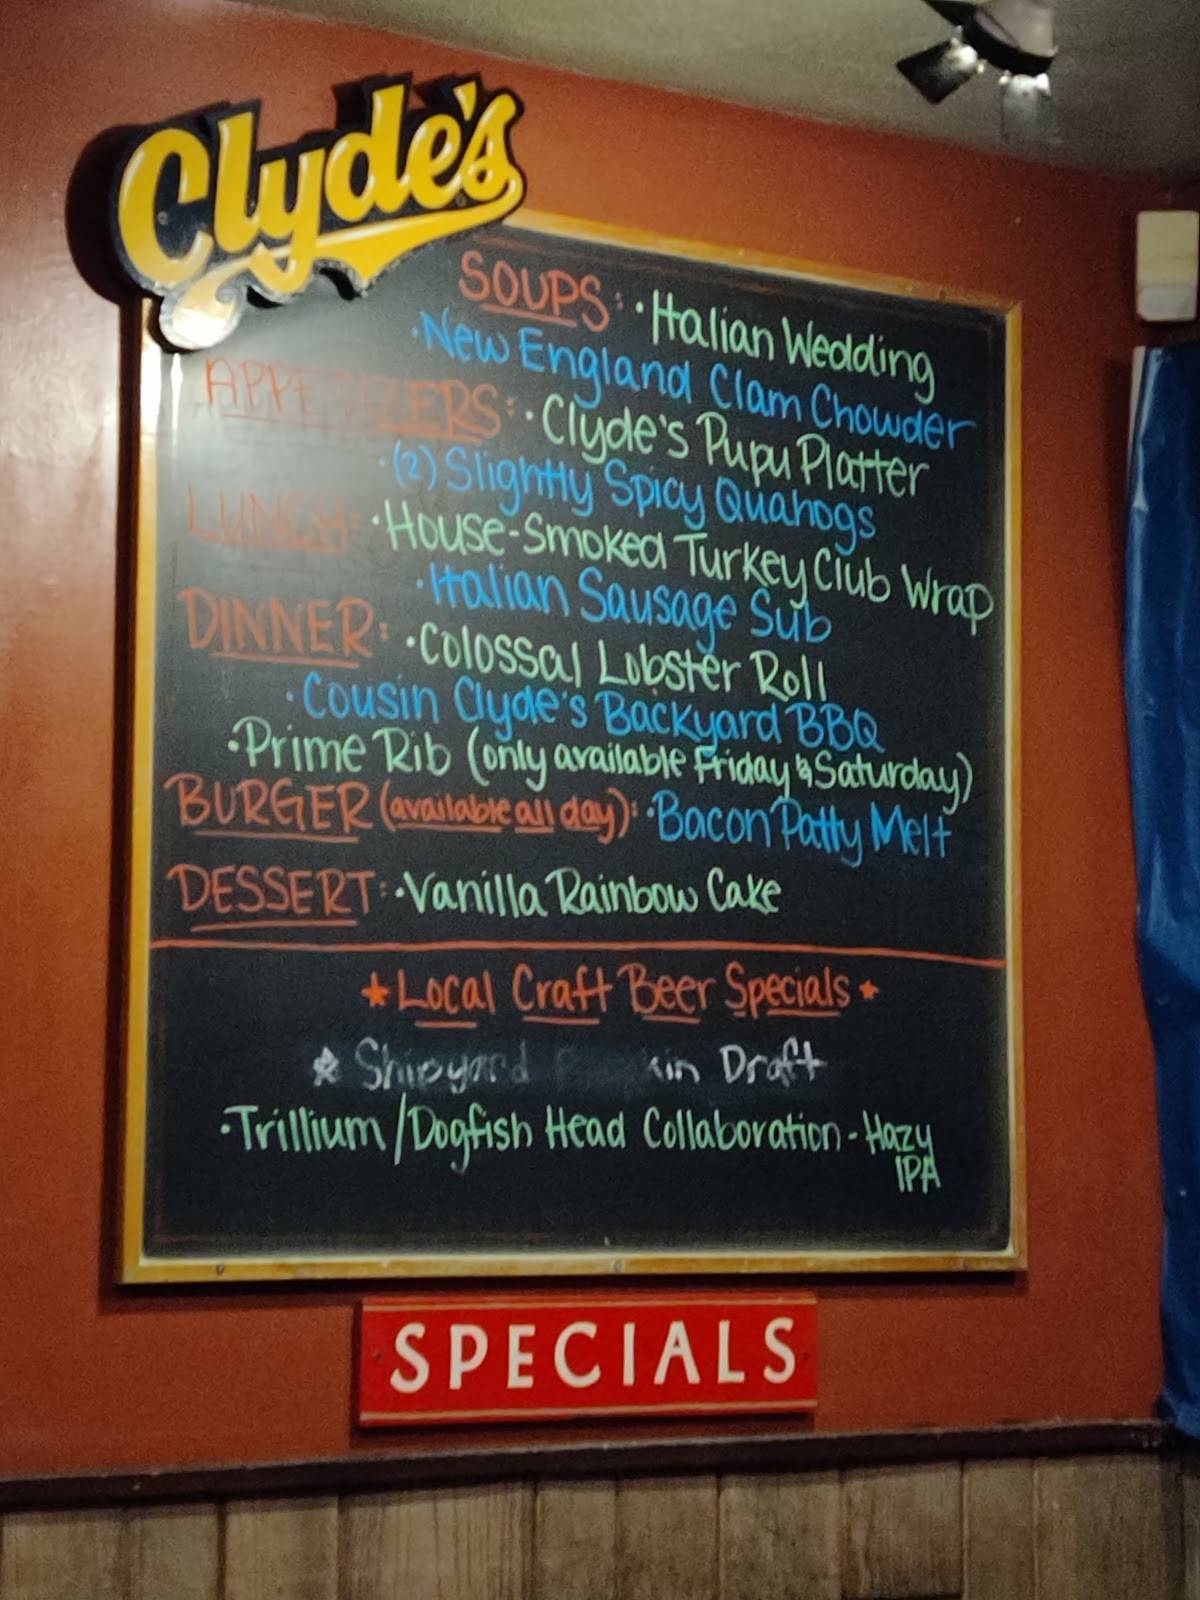 Clyde's
SOUPS: · Italian Wedding
· New England Clam Chowder
APPETIZERS: · Clyde's Pupu Platter
· (2) Slightly Spicy Quahogs
LUNCH: · House-Smoked Turkey Club Wrap
· Italian Sausage Sub
DINNER: · Colossal Lobster Roll
· Cousin Clyde's Backyard BBQ
· Prime Rib (only available Friday & Saturday)
BURGER (available all day): · Bacon Patty Melt
DESSERT: · Vanilla Rainbow Cake
★ Local Craft Beer Specials ★
★ Shipyard Draft
· Trillium/Dogfish Head Collaboration - Hazy
IPA
SPECIALS